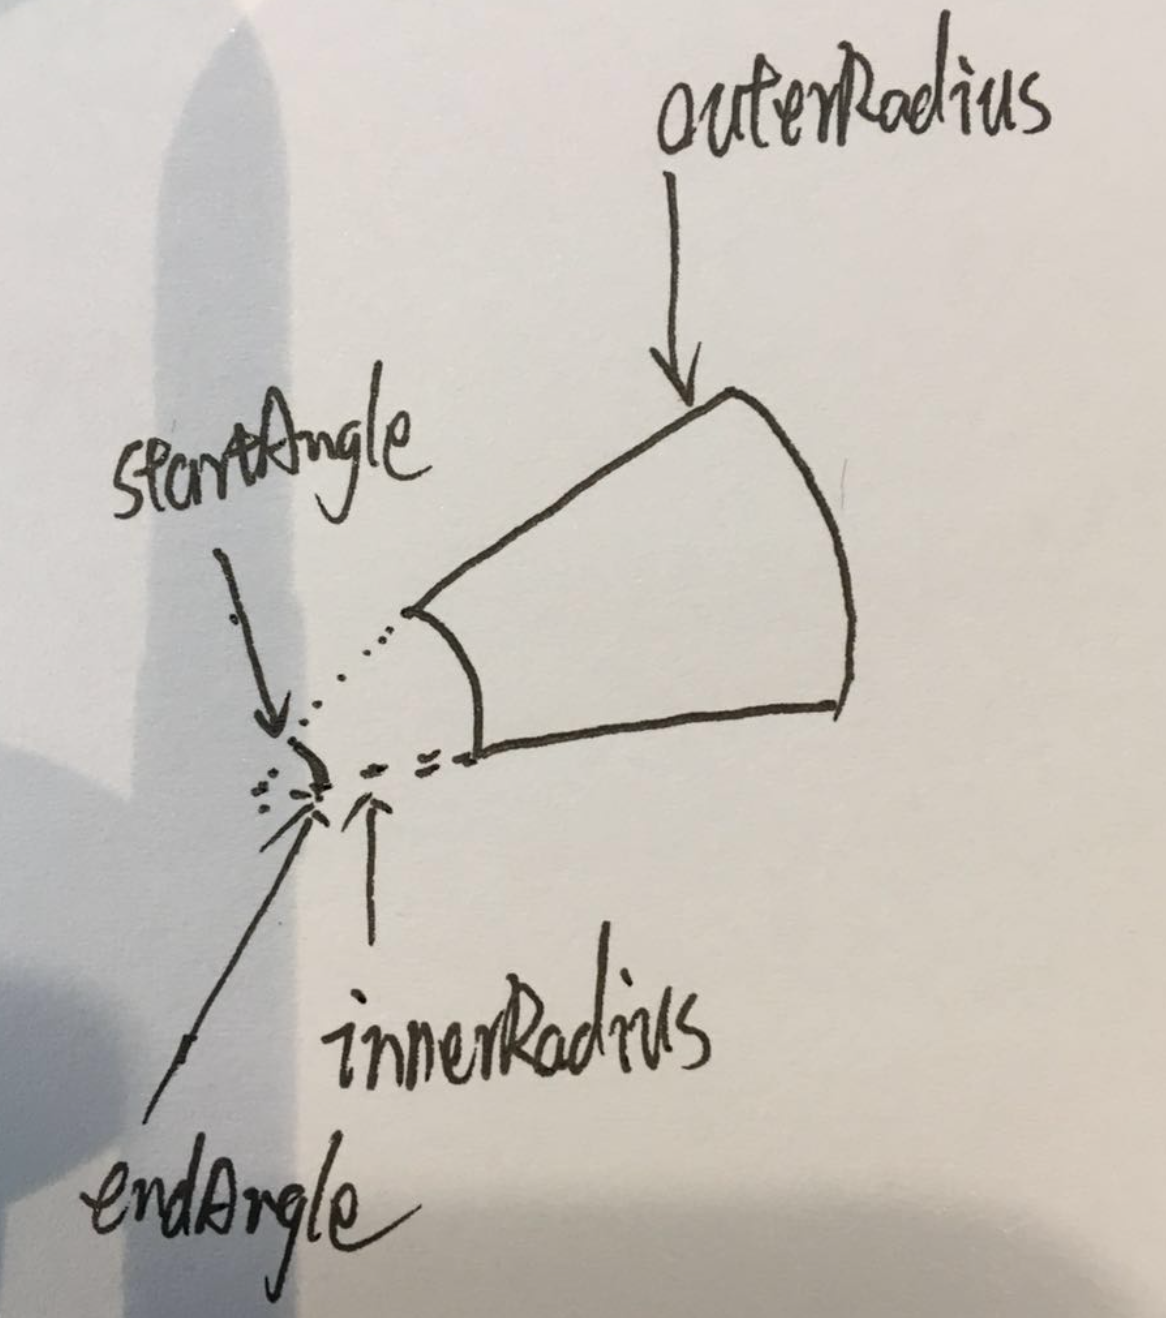 outerRadius
startAngle
innerRadius
endAngle